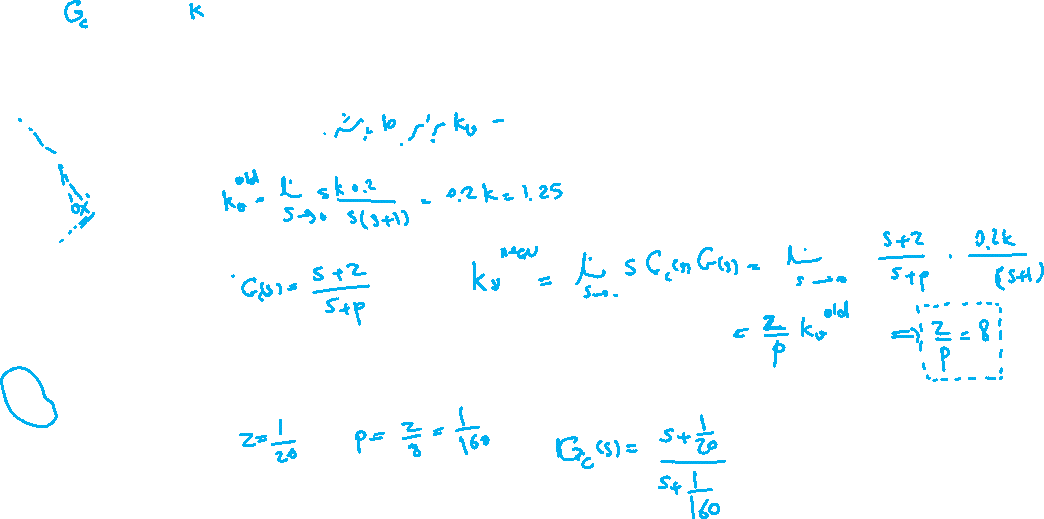 G_c k
k_v برابر 10 باشد.
k_v^old = lim_{s→0} s k 0.2 / s(s+1) = 0.2k = 1.25
G_c(s) = (s+z)/(s+p)
k_v^new = lim_{s→0} s G_c(s) G(s) = lim_{s→0} (s+z)/(s+p) · 0.2k/(s+1)
= z/p k_v^old ⇒ z/p = 8
z = 1/20 p = z/8 = 1/160 G_c(s) = (s + 1/20)/(s + 1/160)